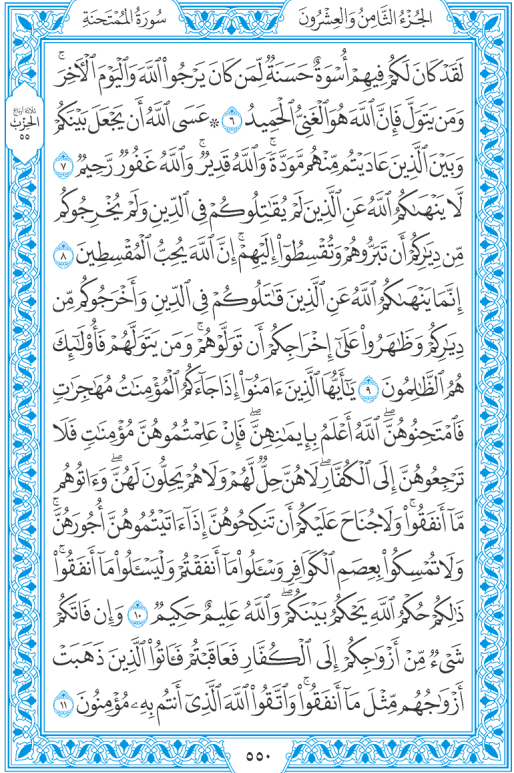 الجُزْءُ الثَّامِنُ وَالعِشْرُونَ
سُورَةُ المُمْتَحنَةِ
لَقَدۡ كَانَ لَكُمۡ فِيهِمۡ أُسۡوَةٌ حَسَنَةٞ لِّمَن كَانَ يَرۡجُواْ ٱللَّهَ وَٱلۡيَوۡمَ ٱلۡأٓخِرَۚ
وَمَن يَتَوَلَّ فَإِنَّ ٱللَّهَ هُوَ ٱلۡغَنِيُّ ٱلۡحَمِيدُ ٦ ۞ عَسَى ٱللَّهُ أَن يَجۡعَلَ بَيۡنَكُمۡ
ثلاثة أرباع
الحِزْب
٥٥
وَبَيۡنَ ٱلَّذِينَ عَادَيۡتُم مِّنۡهُم مَّوَدَّةٗۚ وَٱللَّهُ قَدِيرٞۚ وَٱللَّهُ غَفُورٞ رَّحِيمٞ ٧
لَّا يَنۡهَىٰكُمُ ٱللَّهُ عَنِ ٱلَّذِينَ لَمۡ يُقَٰتِلُوكُمۡ فِي ٱلدِّينِ وَلَمۡ يُخۡرِجُوكُم
مِّن دِيَٰرِكُمۡ أَن تَبَرُّوهُمۡ وَتُقۡسِطُوٓاْ إِلَيۡهِمۡۚ إِنَّ ٱللَّهَ يُحِبُّ ٱلۡمُقۡسِطِينَ ٨
إِنَّمَا يَنۡهَىٰكُمُ ٱللَّهُ عَنِ ٱلَّذِينَ قَٰتَلُوكُمۡ فِي ٱلدِّينِ وَأَخۡرَجُوكُم مِّن
دِيَٰرِكُمۡ وَظَٰهَرُواْ عَلَىٰٓ إِخۡرَاجِكُمۡ أَن تَوَلَّوۡهُمۡۚ وَمَن يَتَوَلَّهُمۡ فَأُوْلَٰٓئِكَ
هُمُ ٱلظَّٰلِمُونَ ٩ يَٰٓأَيُّهَا ٱلَّذِينَ ءَامَنُوٓاْ إِذَا جَآءَكُمُ ٱلۡمُؤۡمِنَٰتُ مُهَٰجِرَٰتٖ
فَٱمۡتَحِنُوهُنَّۖ ٱللَّهُ أَعۡلَمُ بِإِيمَٰنِهِنَّۖ فَإِنۡ عَلِمۡتُمُوهُنَّ مُؤۡمِنَٰتٖ فَلَا
تَرۡجِعُوهُنَّ إِلَى ٱلۡكُفَّارِۖ لَا هُنَّ حِلّٞ لَّهُمۡ وَلَا هُمۡ يَحِلُّونَ لَهُنَّۖ وَءَاتُوهُم
مَّآ أَنفَقُواْۚ وَلَا جُنَاحَ عَلَيۡكُمۡ أَن تَنكِحُوهُنَّ إِذَآ ءَاتَيۡتُمُوهُنَّ أُجُورَهُنَّۚ
وَلَا تُمۡسِكُواْ بِعِصَمِ ٱلۡكَوَافِرِ وَسۡـَٔلُواْ مَآ أَنفَقۡتُمۡ وَلۡيَسۡـَٔلُواْ مَآ أَنفَقُواْۚ
ذَٰلِكُمۡ حُكۡمُ ٱللَّهِ يَحۡكُمُ بَيۡنَكُمۡۖ وَٱللَّهُ عَلِيمٌ حَكِيمٞ ١٠ وَإِن فَاتَكُمۡ
شَيۡءٞ مِّنۡ أَزۡوَٰجِكُمۡ إِلَى ٱلۡكُفَّارِ فَعَاقَبۡتُمۡ فَـَٔاتُواْ ٱلَّذِينَ ذَهَبَتۡ
أَزۡوَٰجُهُم مِّثۡلَ مَآ أَنفَقُواْۚ وَٱتَّقُواْ ٱللَّهَ ٱلَّذِيٓ أَنتُم بِهِۦ مُؤۡمِنُونَ ١١
٥٥٠